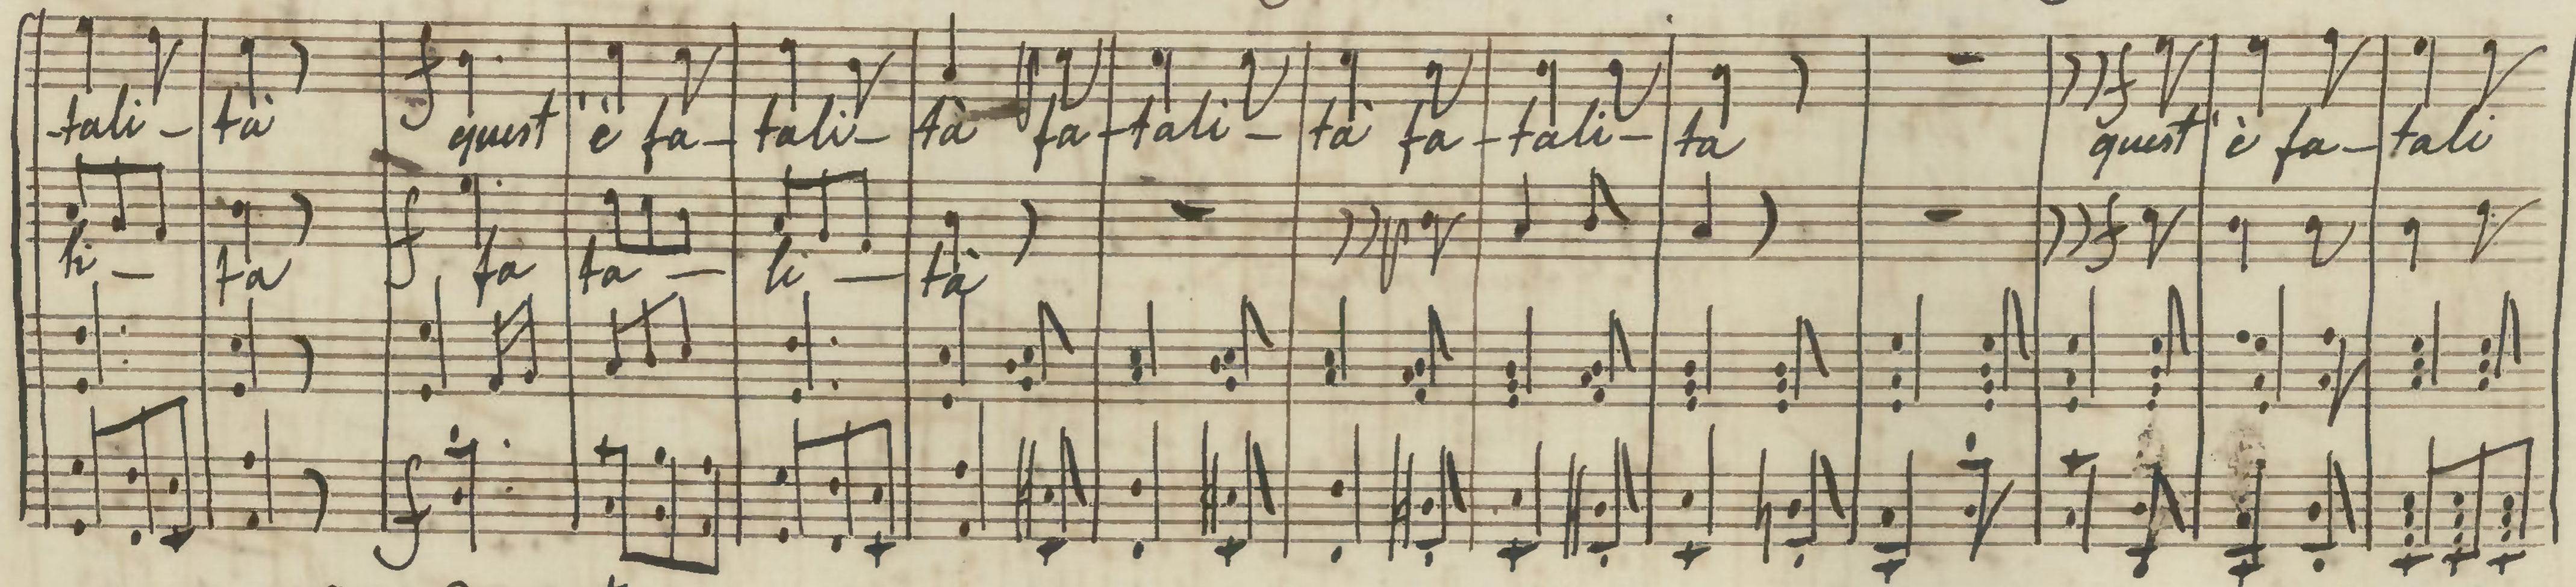 -tali- tà f quest' è fa- tali- tà p fa- tali- tà fa- tali- ta f quest' è fa- tali
li- ta f fa ta- li- tà p f
f